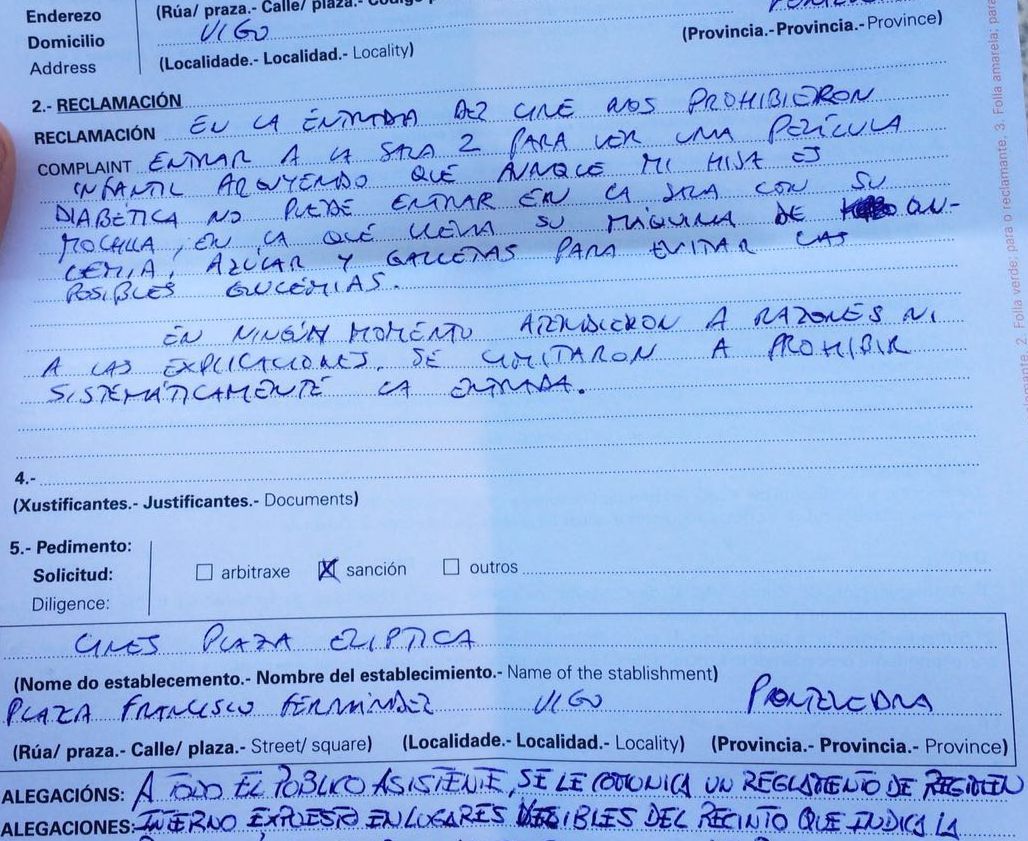 Enderezo
(Rúa/ praza.- Calle/ plaza.-
Domicilio
VIGO
(Provincia.- Provincia.- Province)
Address
(Localidade.- Localidad.- Locality)
2.- RECLAMACIÓN
RECLAMACIÓN EN LA ENTRADA DEL CINE NOS PROHIBIERON
COMPLAINT ENTRAR A LA SALA 2 PARA VER UNA PELÍCULA
INFANTIL ARGUYENDO QUE AUNQUE MI HIJA ES
DIABÉTICA NO PUEDE ENTRAR EN LA SALA CON SU
MOCHILA, EN LA QUE LLEVA SU MÁQUINA DE GLU-
CEMIA, AZÚCAR Y GALLETAS PARA EVITAR LAS
POSIBLES GLUCEMIAS.
EN NINGÚN MOMENTO ATENDIERON A RAZONES NI
A LAS EXPLICACIONES. SE LIMITARON A PROHIBIR
SISTEMÁTICAMENTE LA ENTRADA.
4.-
(Xustificantes.- Justificantes.- Documents)
5.- Pedimento:
Solicitud:
arbitraxe sanción outros
Diligence:
CINES PLAZA ELIPTICA
(Nome do establecemento.- Nombre del establecimiento.- Name of the stablishment)
PLAZA FRANCISCO FERNÁNDEZ VIGO PONTEVEDRA
(Rúa/ praza.- Calle/ plaza.- Street/ square) (Localidade.- Localidad.- Locality) (Provincia.- Provincia.- Province)
ALEGACIÓNS: A TODO EL PÚBLICO ASISTENTE, SE LE COMUNICA UN REGLAMENTO DE REGIMEN
ALEGACIONES: INTERNO EXPUESTO EN LUGARES VISIBLES DEL RECINTO QUE INDICA LA
2. Folla verde; para o reclamante. 3. Folla amarela; para